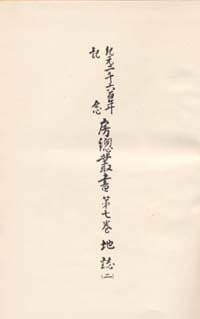 紀元二千六百年
記念
房總叢書第七巻地誌(二)